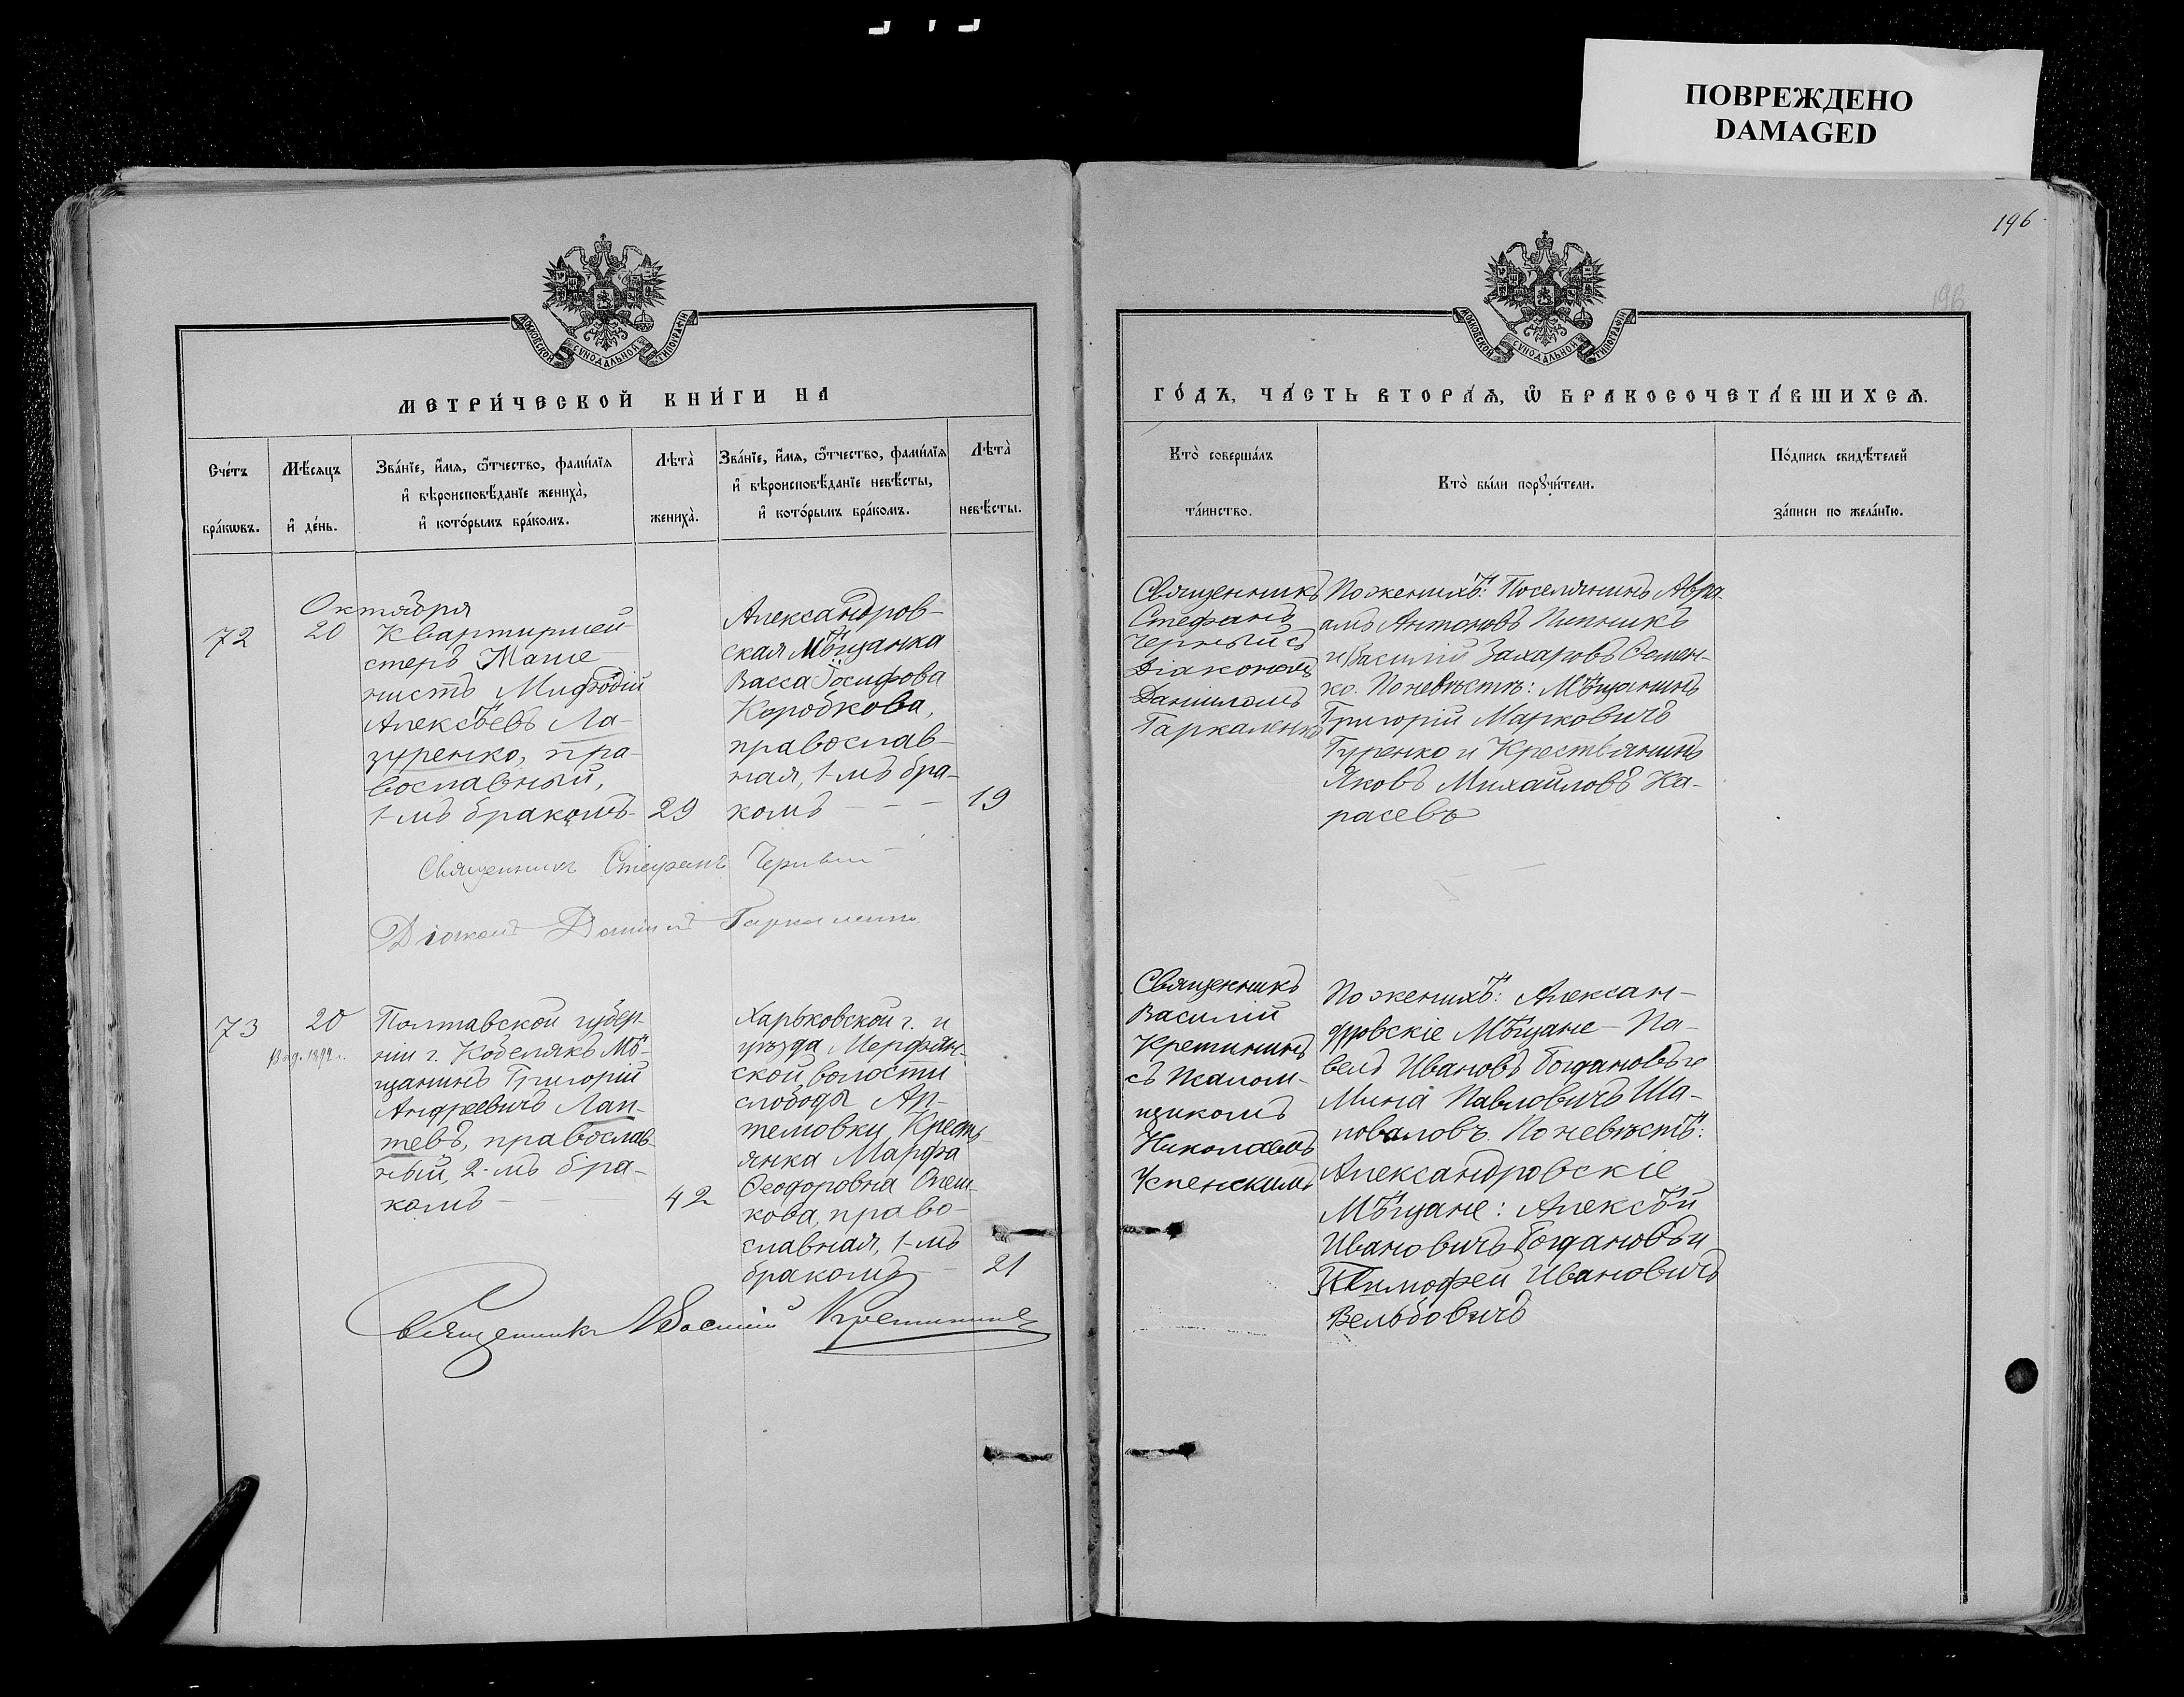 ПОВРЕЖДЕНО
DAMAGED
196
196
МОСКОВСКОЙ СѴНОДАЛЬНОЙ ТИПОГРАФІИ
МЕТРИ́ЧЕСКОЙ КНИ́ГИ НА
Сче́тъ
бра́кѡвъ.
Мѣ́сяцъ
и҆ де́нь.
Зва́нїе, и҆́мѧ, ѻ҆́тчество, фами́лїѧ
и҆ вѣроисповѣ́данїе жениха̀,
и҆ кото́рымъ бра́комъ.
Лѣта̀
жениха̀.
Зва́нїе, и҆́мѧ, ѻ҆́тчество, фами́лїѧ
и҆ вѣроисповѣ́данїе невѣ́сты,
и҆ кото́рымъ бра́комъ.
Лѣта̀
невѣ́сты.
Октября
72
20
Квартирмей-
стеръ Маши-
нистъ Мифодій
Алексѣевъ Ла-
зуренко, пра-
вославный,
1-мъ бракомъ-
29
Александров-
ская Мѣщанка
Васса Іосифова
Коробкова,
православ-
ная, 1-мъ бра-
комъ - - -
19
Священникъ Стефанъ Черный
Діаконъ Даніилъ Гаркаленко
73
20
1892 г.
Полтавской губер-
ніи г. Кобелякъ Мѣ-
щанинъ Григорій
Андреевичъ Лап-
тевъ, православ-
ный, 2-мъ бра-
комъ
42
Харьковской г. и
уѣзда Мерефян-
ской волости
слободы Ар-
темовки Кресть-
янка Марфа
Ѳеодоровна
кова, право-
славная, 1-мъ
бракомъ
21
Священникъ Василій Кретининъ
МОСКОВСКОЙ СѴНОДАЛЬНОЙ ТИПОГРАФІИ
ГО́ДЪ, ЧА́СТЬ ВТОРА́Ѧ, Ѡ҆ БРАКОСОЧЕТА́ВШИХСѦ.
Кто̀ соверша́лъ
та́инство.
Кто̀ бы́ли порꙋчи́тели.
По́дпись свидѣ́телей
за́писи по жела́нїю.
Священникъ
Стефанъ
Черный съ
Діакономъ
Даніиломъ
Гаркаленко
По женихѣ: Поселянинъ Авра-
амъ Антоновъ Пипникъ
и Василій Захаровъ Осмен-
ко. По невѣстѣ: Мѣщанинъ
Григорій Марковичъ
Гуренко и Крестьянинъ
Яковъ Михайловъ Ка-
расевъ
Священникъ
Василій
Кретининъ
съ Псалом-
щикомъ
Николаемъ
Успенскимъ
По женихѣ: Алексан-
дровскіе Мѣщане - Па-
велъ Ивановъ Богдановъ и
Мина Павловичъ Ша-
поваловъ. По невѣстѣ:
Александровскіе
Мѣщане: Алексѣй
Ивановичъ Богдановъ и
Тимофей Ивановичъ
Вельбовичъ